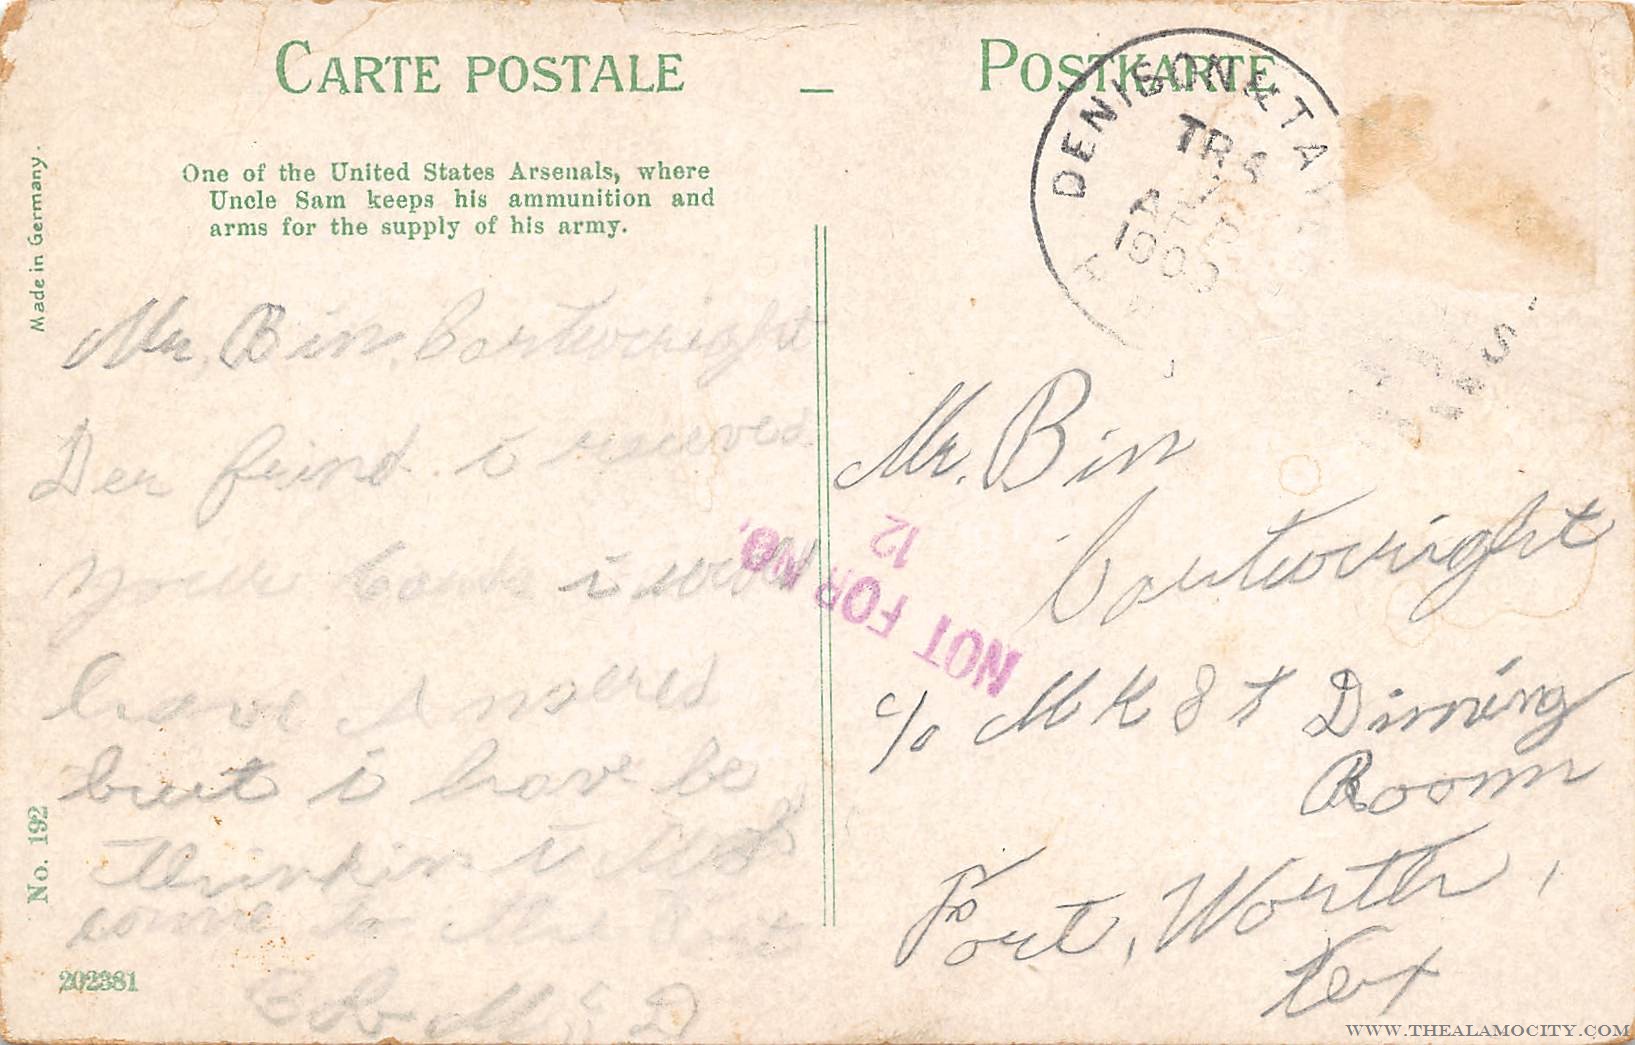 CARTE POSTALE — POSTKARTE
One of the United States Arsenals, where
Uncle Sam keeps his ammunition and
arms for the supply of his army.
Made in Germany.
No. 192
202381
DENISON & TA
TR
1909
NOT FOR NO.
12
Mr. Bin. Cartwright
Der frind i received
Card i
have Ansered
but i have be
thinkin i
come to the
Mr. Bin
Cartwright
c/o M K & T Dinning
Room
Fort, Worth,
Tex
WWW.THEALAMOCITY.COM